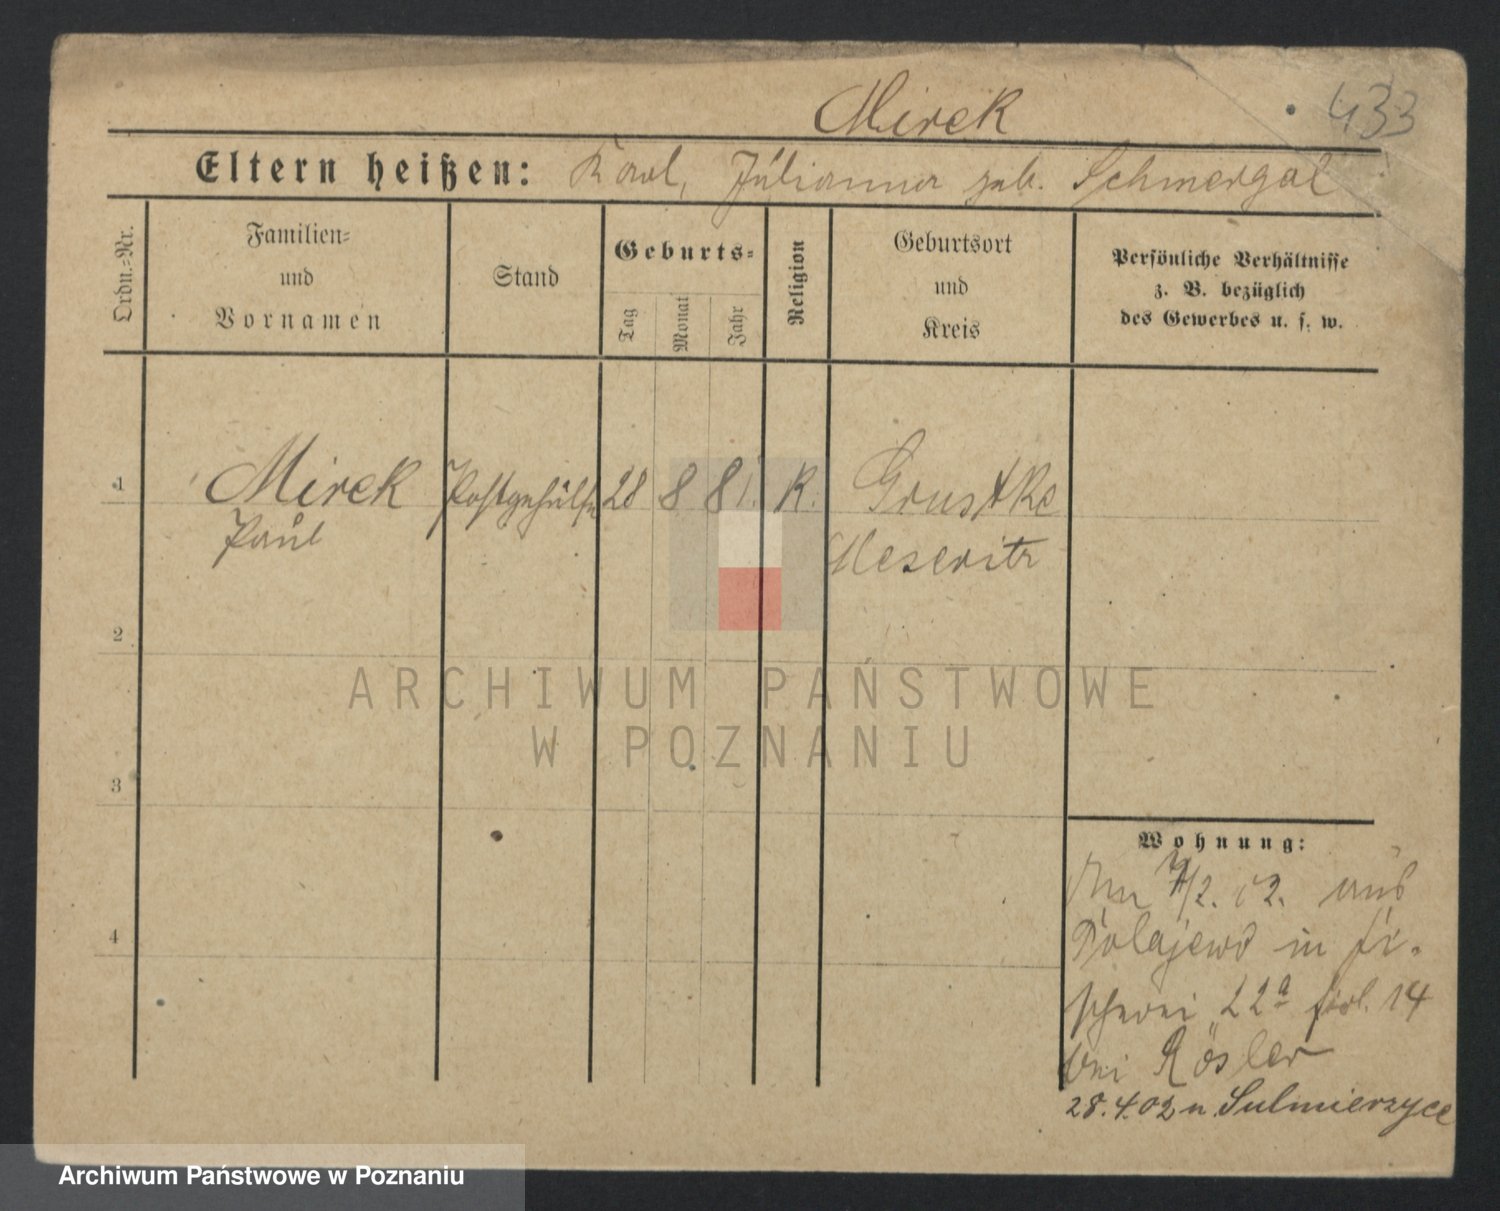 Mirek
433
Eltern heißen: Karl, Julianna geb. Schmergal
Ordn.-Nr.
Familien-
und
Vornamen
Stand
Geburts-
Tag
Monat
Jahr
Religion
Geburtsort
und
Kreis
Persönliche Verhältnisse
z. B. bezüglich
des Gewerbes u. s. w.
1
Mirek
Paul
Postgehülfe
28
8
81.
K.
Grustke
Meseritz
2
3
4
Wohnung:
/2. 02. aus
Polajewo in Fi-
scherei 22a 14
bei Rösler
28.4.02 n. Sulmierzyce
ARCHIWUM PAŃSTWOWE
W POZNANIU
Archiwum Państwowe w Poznaniu